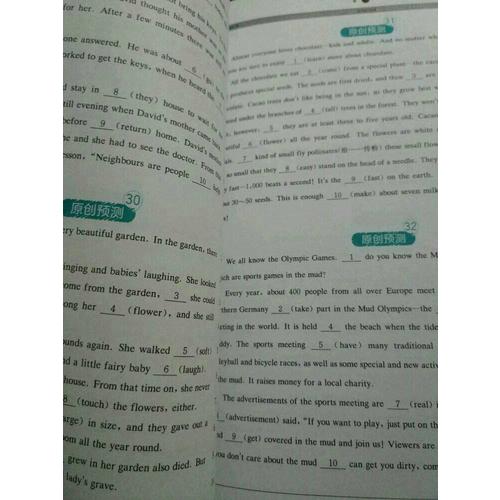 of being his keys.
David thought his mother was
for her. After a few minutes there was
one answered. He was about 6 (get) to
worked to get the keys, when he heard the
d stay in 8 (they) house to wait for
still evening when David's mother came back
before 9 (return) home. David's mother
me and she had to see the doctor. From this
lesson, "Neighbours are people 10
30
原创预测
very beautiful garden. In the garden, there
singing and babies' laughing. She looked
come from the garden, 3 she could
ong her 4 (flower), and she still
ounds again. She walked 5 (soft)
nd a little fairy baby 6 (laugh).
house. From that time on, she never
8 (touch) the flowers, either.
arge) in size, and they gave out a
oom all the year round.
grew in her garden also died. But
lady's grave.
31
原创预测
Almost everyone loves chocolate—kids and adults. And no matter
you are sure to enjoy 1 (learn) more about chocolate.
All the chocolate we eat 2 (come) from a special plant—the cacao
produces special seeds. The seeds are first dried, and then 3 are
colate. Cacao trees don't like being in the sun, so they grow best
und under the branches of 4 (tall) trees in the forest. They won't
it; however, 5 they are at least three to five years old. Cacao
utiful 6 (flower) all the year round. The flowers are white
als. 7 kind of small fly pollinates (给……传粉) these small flow
so small that they 8 (easy) stand on the head of a needle. They
y fast—1,000 beats a second! It's the 9 (fast) on the earth.
out 30～50 seeds. This is enough 10 (make) about seven milk
s!
32
原创预测
We all know the Olympic Games. 1 do you know the M
ich are sports games in the mud?
Every year, about 400 people from all over Europe meet
rthern Germany 2 (take) part in the Mud Olympics—the
eting in the world. It is held 4 the beach when the tide
ddy. The sports meeting 5 (have) many traditional
lleyball and bicycle races, as well as some special and new activ
the mud. It raises money for a local charity.
The advertisements of the sports meeting are 7 (real) i
(advertisement) said, "If you want to play, just put on th
nd 9 (get) covered in the mud and join us! Viewers are
you don't care about the mud 10 can get you dirty, com